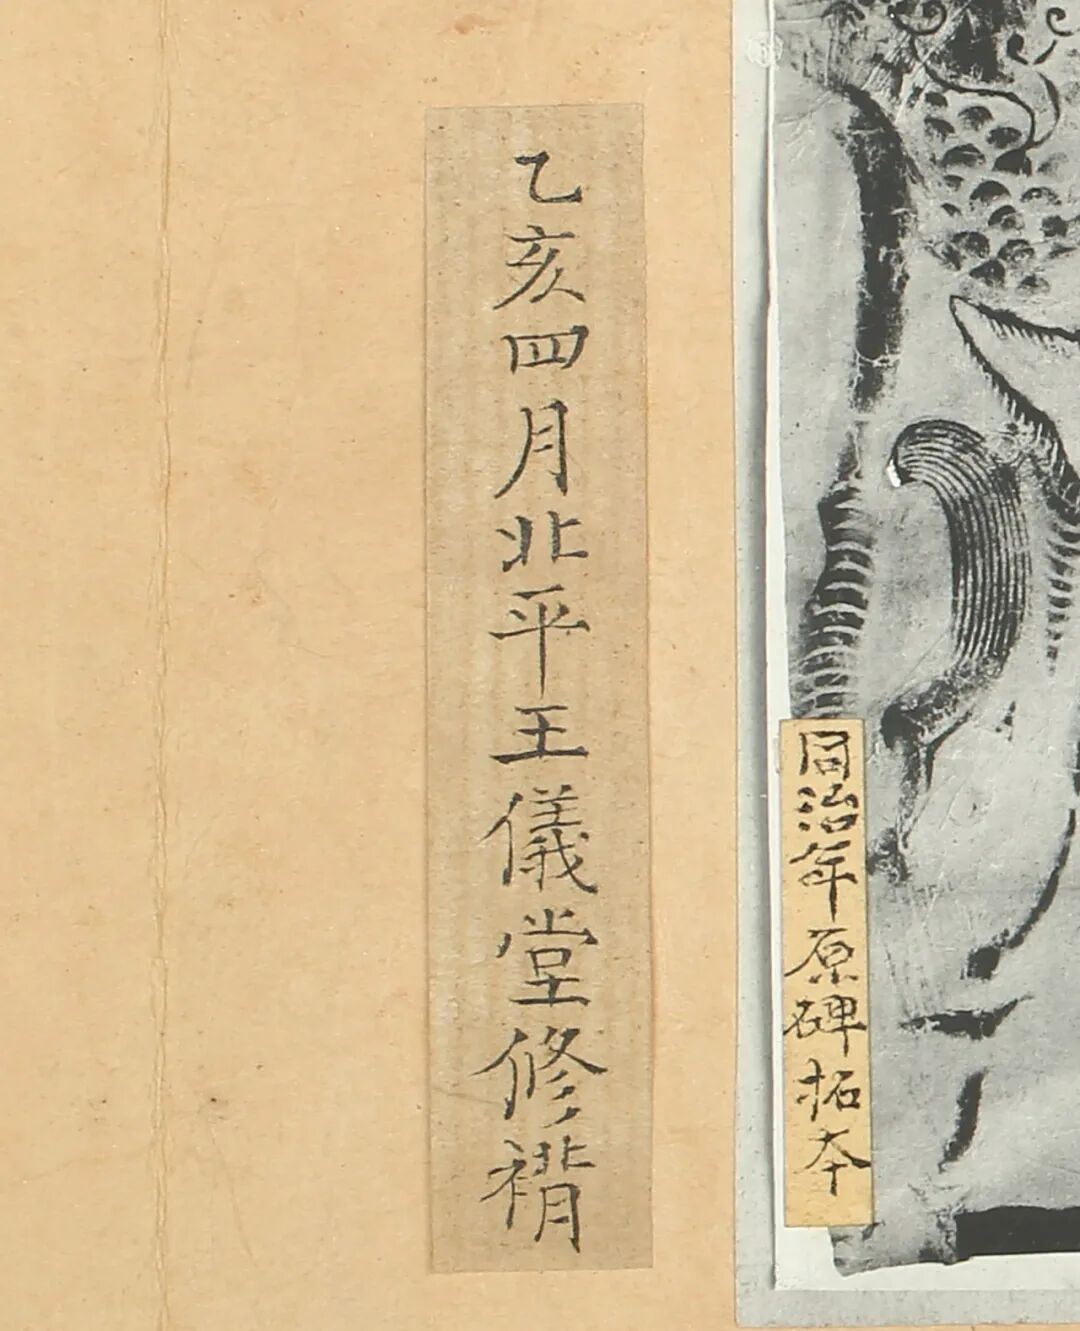 同治年原碑拓本
乙亥四月北平王儀堂修褙